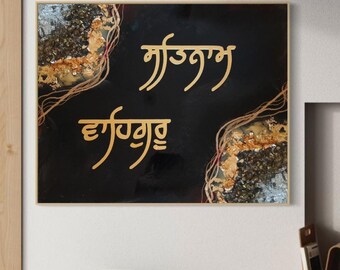 ਸਤਿਨਾਮ
ਵਾਹਿਗੁਰੂ